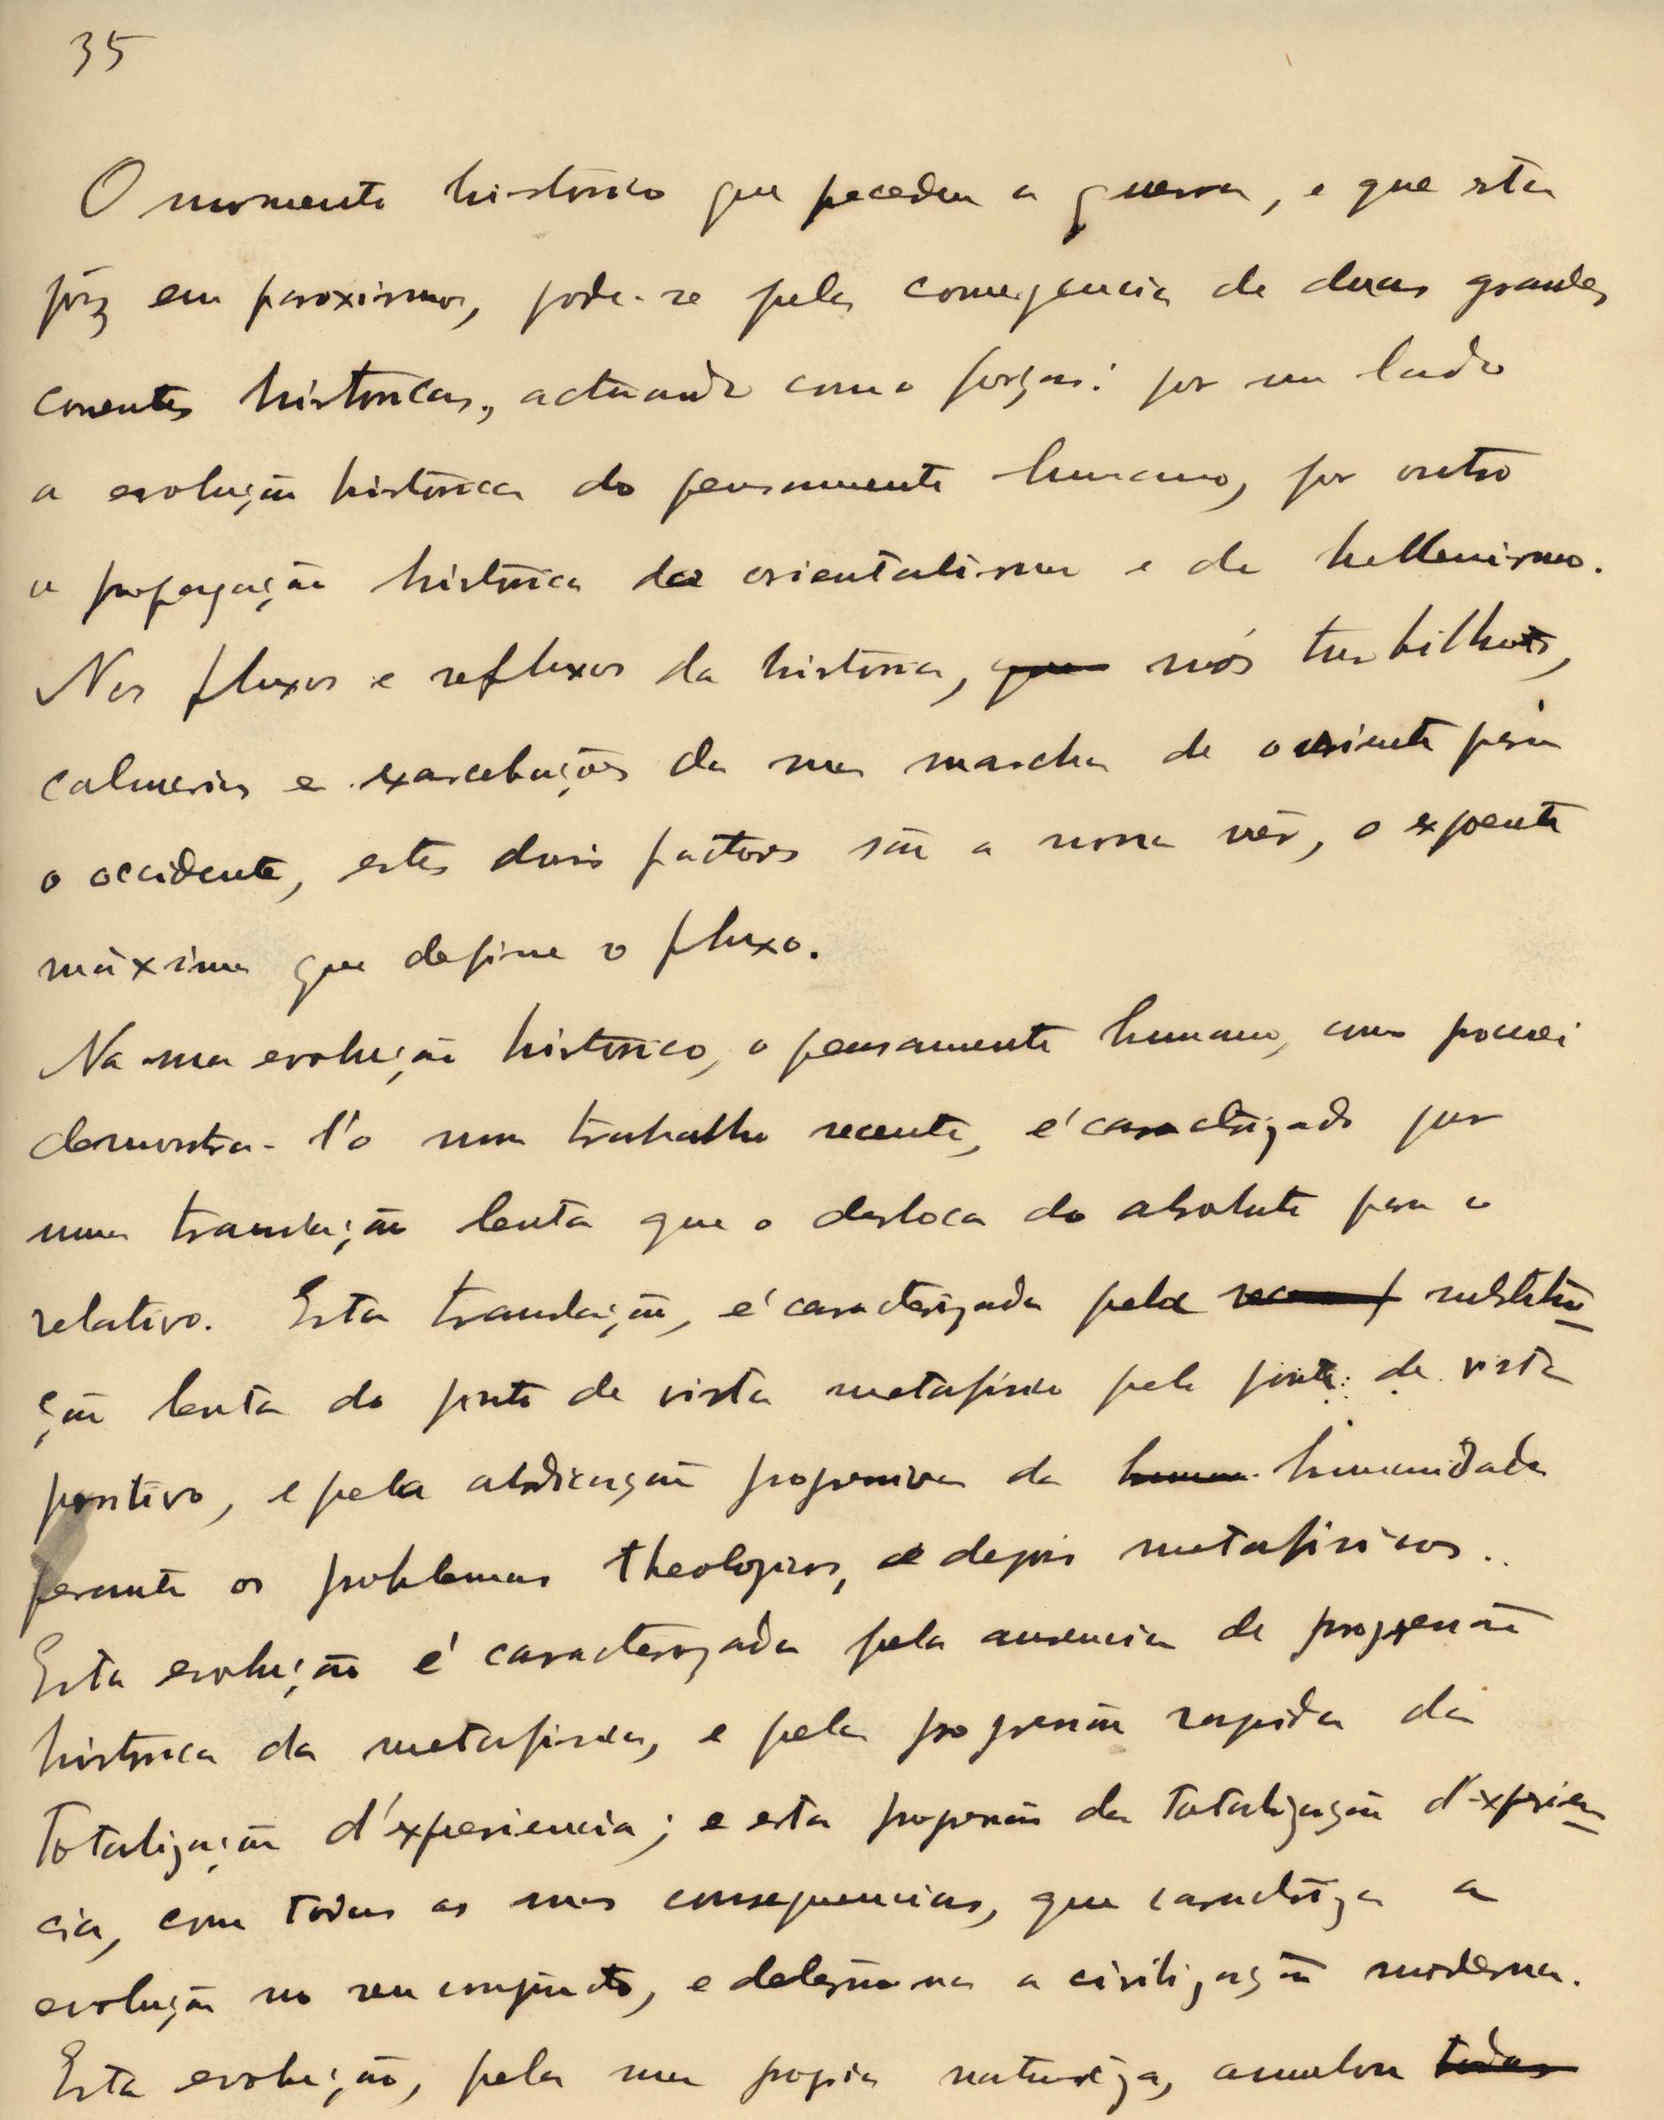 35
O momento historico que precedeu a guerra, e que esta
pôz em paroxismos, pode-se pela convergencia de duas grandes
correntes historicas, actuando como forças: por um lado
a evolução historica do pensamento humano, por outro
a propagação historica do orientalismo e do hellenismo.
Nos fluxos e refluxos da historia, que nós turbilhões,
calmerias e exarcebações da sua marcha do oriente para
o occidente, estes dois factores são a nosso vêr, o expoente
máximo que define o fluxo.
Na sua evolução historico, o pensamento humano, como procurei
demonstra-l'o num trabalho recente, é caracterizado por
uma translação lenta que o desloca do absoluto para o
relativo. Esta translação, é caracterizada pela substitui
ção lenta do ponto de vista metafisico pelo ponto de vista
positivo, e pela abdicação progressiva da humanidade
perante os problemas theologicos, e depois metafisicos..
Esta evolução é caracterizada pela ausencia de progressão
historica da metafisica, e pela progressão rapida da
Totalização d'experiencia; e esta progressão da totalização d'experien
cia, com todas as suas consequencias, que caracteriza a
evolução no seu conjuncto, e determina a civilização moderna.
Esta evolução, pela sua propria natureza, annulou todas